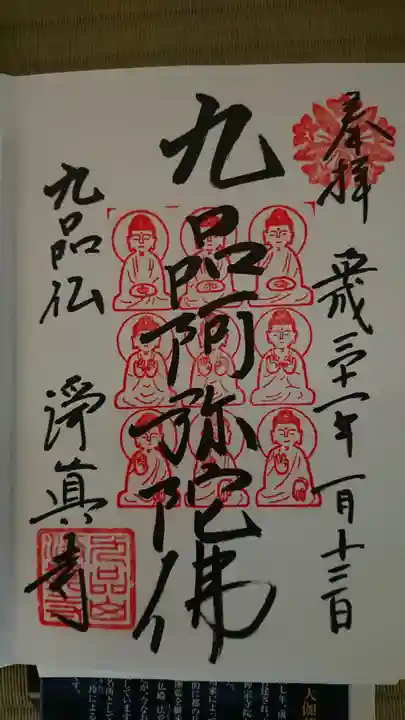 奉拝
平成三十一年一月十三日
九品阿弥陀佛
九品仏 淨眞寺